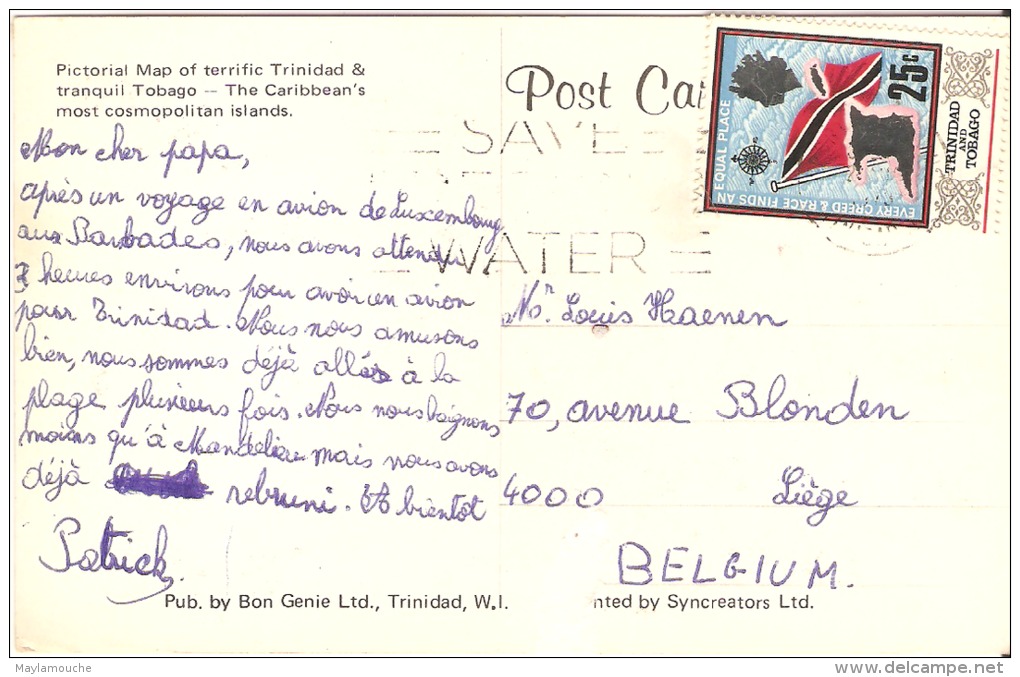 Pictorial Map of terrific Trinidad &
tranquil Tobago -- The Caribbean's
most cosmopolitan islands.
Post Car
SAVE
WATER
EQUAL PLACE
EVERY CREED & RACE FINDS AN
25c
TRINIDAD
AND
TOBAGO
Mon cher papa,
après un voyage en avion de Luxembourg
aux Barbades, nous avons attendu
heures environs pour avoir un avion
pour Trinidad. Nous nous amusons
bien, nous sommes déjà allés à la
plage plusieurs fois. Nous nous baignons
moins qu'à Mandelieu mais nous avons
déjà rebruni. A bientôt
Patrick
Mr. Louis Haenen
70, avenue Blonden
4000 Liège
BELGIUM.
Pub. by Bon Genie Ltd., Trinidad, W.I.
nted by Syncreators Ltd.
Maylamouche
delcampe.net